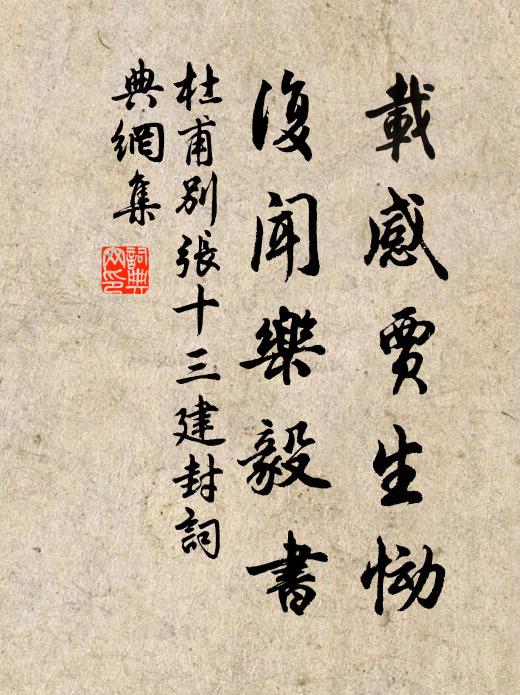 載感賈生慟
復聞樂毅書
杜甫別張十三建封詞
典網集
詞典